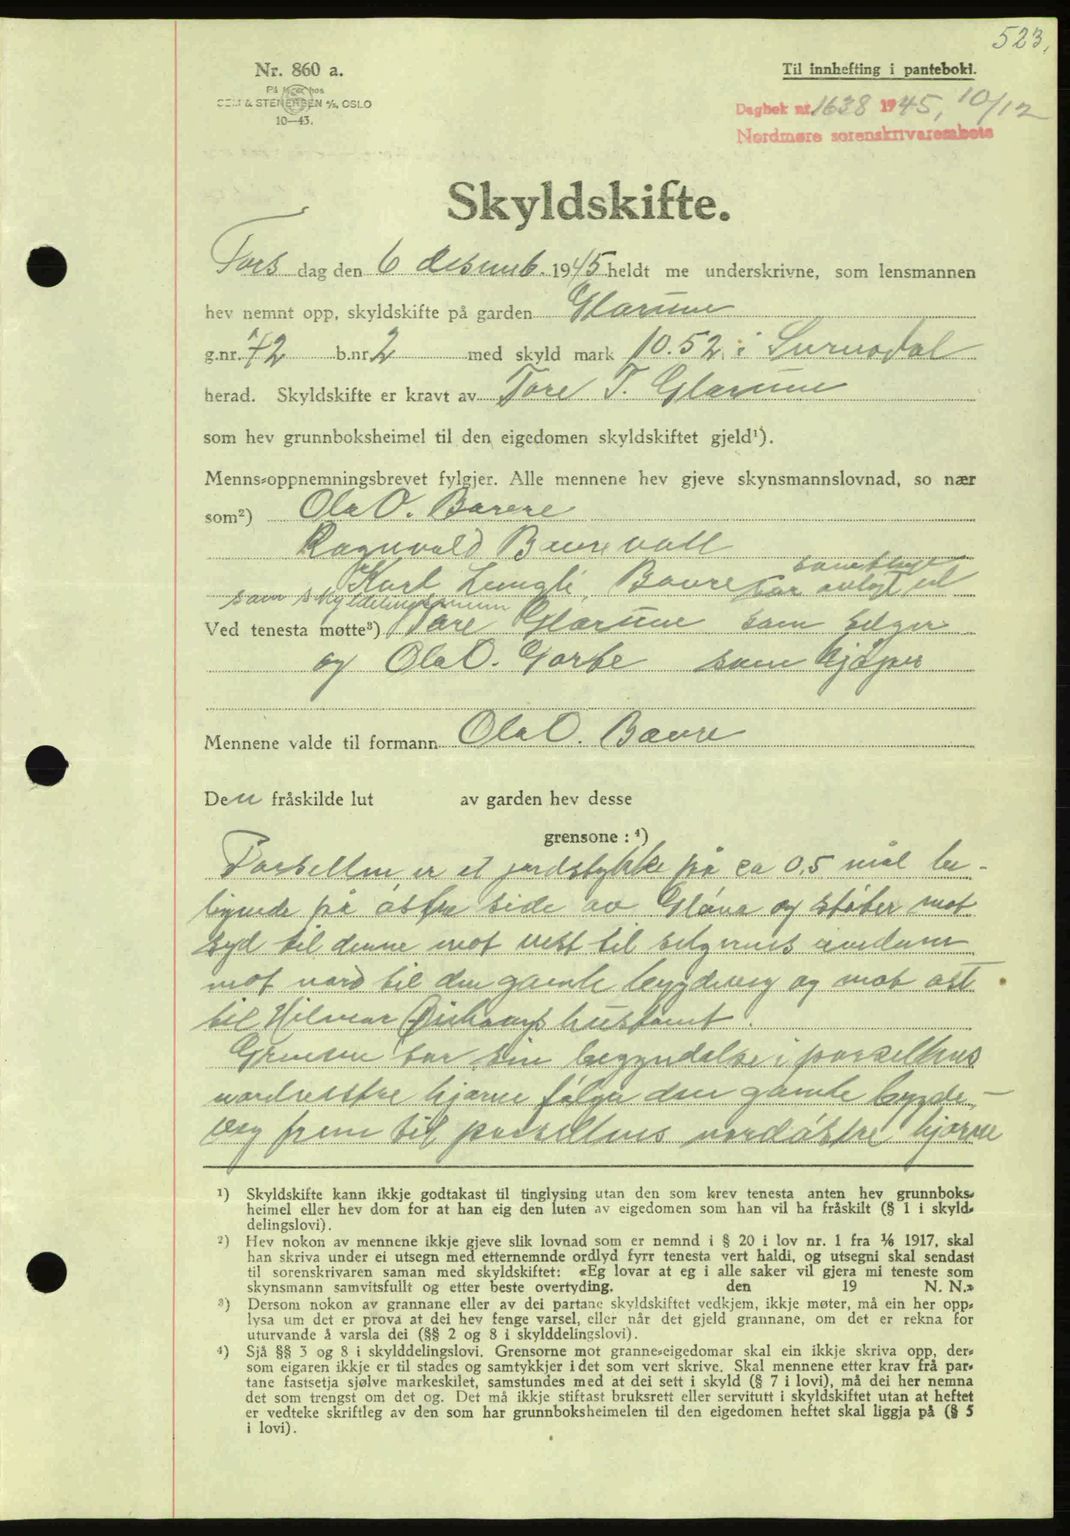 523.
Nr. 860 a.
Til innhefting i panteboki.
På lager hos
SEM & STENERSEN A/S, OSLO
10—43.
Dagbok nr. 1638 1945, 10/12
Nordmøre sorenskrivarembete
Skyldskifte.
Torsdag den 6 desemb. 1945 heldt me underskrivne, som lensmannen
hev nemnt opp, skyldskifte på garden Glærum
g.nr. 72 b.nr 2 med skyld mark 10.52 i Surnadal
herad. Skyldskifte er kravt av Tore T. Glærum
som hev grunnboksheimel til den eigedomen skyldskiftet gjeld¹).
Menns-oppnemningsbrevet fylgjer. Alle mennene hev gjeve skynsmannslovnad, so nær
som²) Ola O. Bævre
Ragnvald Bævre
Karl Bævre
som har avlagt ed
Ved tenesta møtte³) Tore Glærum som selger
og Ola O. som kjøper
Mennene valde til formann Ola O. Bævre
Den fråskilde lut av garden hev desse
grensone: ⁴)
Parsellen er et jordstykke på ca 0,5 mål be-
liggende på østre side av Gløna og støter mot
syd til denne mot vest til selgerens eiendom
mot nord til den gamle bygdeveg og mot øst
til Hilmar
Grensen tar sin begyndelse i parsellens
nordvestre hjørne følger den gamle bygde-
veg frem til parsellens nordøstre hjørne
¹) Skyldskifte kann ikkje godtakast til tinglysing utan den som krev tenesta anten hev grunnboks-
heimel eller hev dom for at han eig den luten av eigedomen som han vil ha fråskilt (§ 1 i skyld-
delingslovi).
²) Hev nokon av mennene ikkje gjeve slik lovnad som er nemnd i § 20 i lov nr. 1 fra 1/6 1917, skal
han skriva under ei utsegn med etternemnde ordlyd fyrr tenesta vert haldi, og utsegni skal sendast
til sorenskrivaren saman med skyldskiftet: «Eg lovar at eg i alle saker vil gjera mi teneste som
skynsmann samvitsfullt og etter beste overtyding. den 19 N. N.»
³) Dersom nokon av grannane eller av dei partane skyldskiftet vedkjem, ikkje møter, må ein her opp-
lysa um det er prova at dei hev fenge varsel, eller når det gjeld grannane, om det er rekna for
uturvande å varsla dei (§§ 2 og 8 i skylddelingslovi).
⁴) Sjå §§ 3 og 8 i skylddelingslovi. Grensorne mot granne-eigedomar skal ein ikkje skriva opp, der-
som eigaren ikkje er til stades og samtykkjer i det som vert skrive. Skal mennene etter krav frå par-
tane fastsetja sjølve markeskilet, samstundes med at dei sett i skyld (§ 7 i lovi), må dei her nemna
det som trengst om det og. Det må ikkje stiftast bruksrett eller servitutt i skyldskiftet utan at heftet
er vedteke skriftleg av den som har grunnboksheimelen til den eigedomen heftet skal liggja på (§ 5
i lovi).